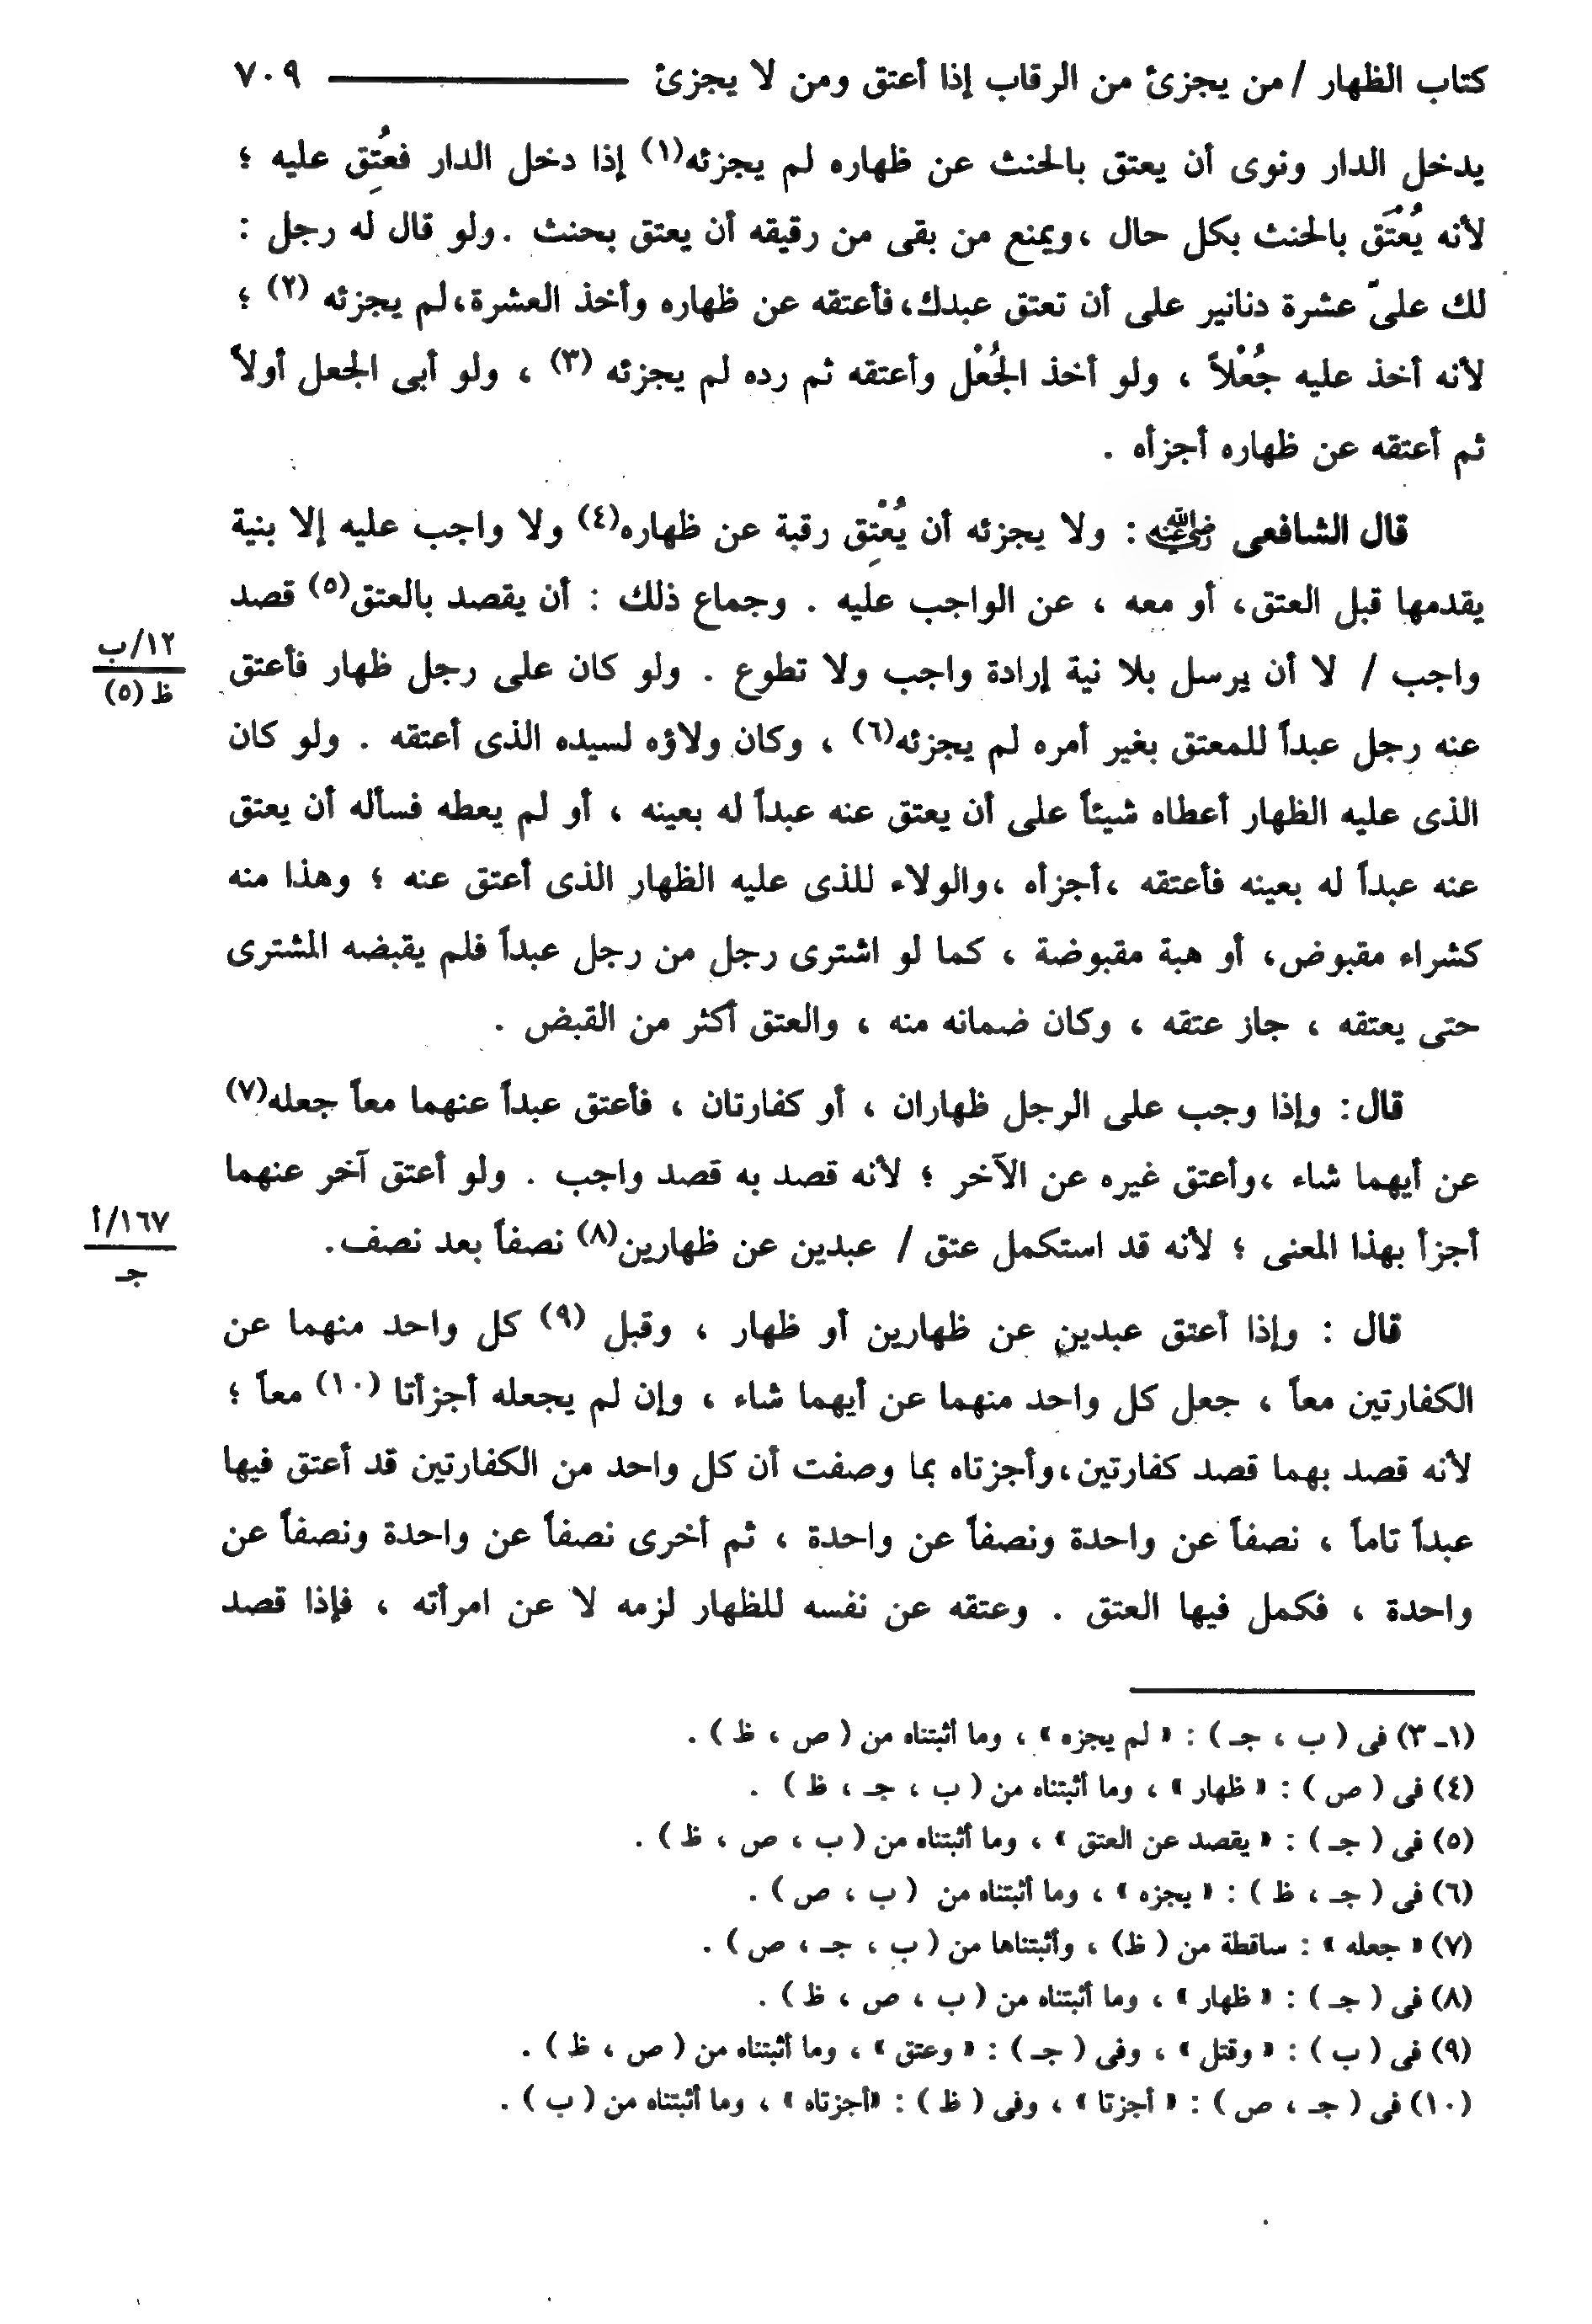 كتاب الظهار / من يجزئ من الرقاب إذا أعتق ومن لا يجزئ ٧٠٩
يدخل الدار ونوى أن يعتق بالحنث عن ظهاره لم يجزئه(١) إذا دخل الدار فعُتِق عليه ؛
لأنه يُعْتَق بالحنث بكل حال ،ويمنع من بقى من رقيقه أن يعتق بحنث .ولو قال له رجل :
لك علىّ عشرة دنانير على أن تعتق عبدك،فأعتقه عن ظهاره وأخذ العشرة،لم يجزئه (٢) ؛
لأنه أخذ عليه جُعْلاً ، ولو أخذ الجُعْل وأعتقه ثم رده لم يجزئه (٣) ، ولو أبى الجعل أولاً
ثم أعتقه عن ظهاره أجزأه .
قال الشافعى رضي الله عنه : ولا يجزئه أن يُعْتِق رقبة عن ظهاره(٤) ولا واجب عليه إلا بنية
يقدمها قبل العتق، أو معه ، عن الواجب عليه . وجماع ذلك : أن يقصد بالعتق(٥) قصد
واجب / لا أن يرسل بلا نية إرادة واجب ولا تطوع . ولو كان على رجل ظهار فأعتق
١٢/ب
ظ (٥)
عنه رجل عبداً للمعتق بغير أمره لم يجزئه(٦) ، وكان ولاؤه لسيده الذى أعتقه . ولو كان
الذى عليه الظهار أعطاه شيئاً على أن يعتق عنه عبداً له بعينه ، أو لم يعطه فسأله أن يعتق
عنه عبداً له بعينه فأعتقه ،أجزأه ،والولاء للذى عليه الظهار الذى أعتق عنه ؛ وهذا منه
كشراء مقبوض، أو هبة مقبوضة ، كما لو اشترى رجل من رجل عبداً فلم يقبضه المشترى
حتى يعتقه ، جاز عتقه ، وكان ضمانه منه ، والعتق أكثر من القبض .
قال: وإذا وجب على الرجل ظهاران ، أو كفارتان ، فأعتق عبداً عنهما معاً جعله(٧)
عن أيهما شاء ،وأعتق غيره عن الآخر ؛ لأنه قصد به قصد واجب . ولو أعتق آخر عنهما
أجزأ بهذا المعنى ؛ لأنه قد استكمل عتق / عبدين عن ظهارين(٨) نصفاً بعد نصف.
١٦٧/أ
جـ
قال : وإذا أعتق عبدين عن ظهارين أو ظهار ، وقبل (٩) كل واحد منهما عن
الكفارتين معاً ، جعل كل واحد منهما عن أيهما شاء ، وإن لم يجعله أجزأتا (١٠) معاً ؛
لأنه قصد بهما قصد كفارتين،وأجزتاه بما وصفت أن كل واحد من الكفارتين قد أعتق فيها
عبداً تاماً ، نصفاً عن واحدة ونصفاً عن واحدة ، ثم أخرى نصفاً عن واحدة ونصفاً عن
واحدة ، فكمل فيها العتق . وعتقه عن نفسه للظهار لزمه لا عن امرأته ، فإذا قصد
(١ـ ٣) فى ( ب ، جـ ) : « لم يجزه » ، وما أثبتناه من ( ص ، ظ ) .
(٤) فى ( ص ) : « ظهار » ، وما أثبتناه من ( ب ، جـ ، ظ ) .
(٥) فى ( جـ ) : « يقصد عن العتق » ، وما أثبتناه من ( ب ، ص ، ظ ) .
(٦) فى ( جـ ، ظ ) : « يجزه » ، وما أثبتناه من ( ب ، ص ) .
(٧) « جعله » : ساقطة من ( ظ) ، وأثبتناها من ( ب ، جـ ، ص ) .
(٨) فى ( جـ ) : « ظهار » ، وما أثبتناه من ( ب ، ص ، ظ ) .
(٩) فى ( ب ) : « وقتل » ، وفى ( جـ ) : « وعتق » ، وما أثبتناه من ( ص ، ظ ) .
(١٠) فى ( جـ ، ص ) : « أجزتا » ، وفى ( ظ ) : «أجزتاه » ، وما أثبتناه من ( ب ) .